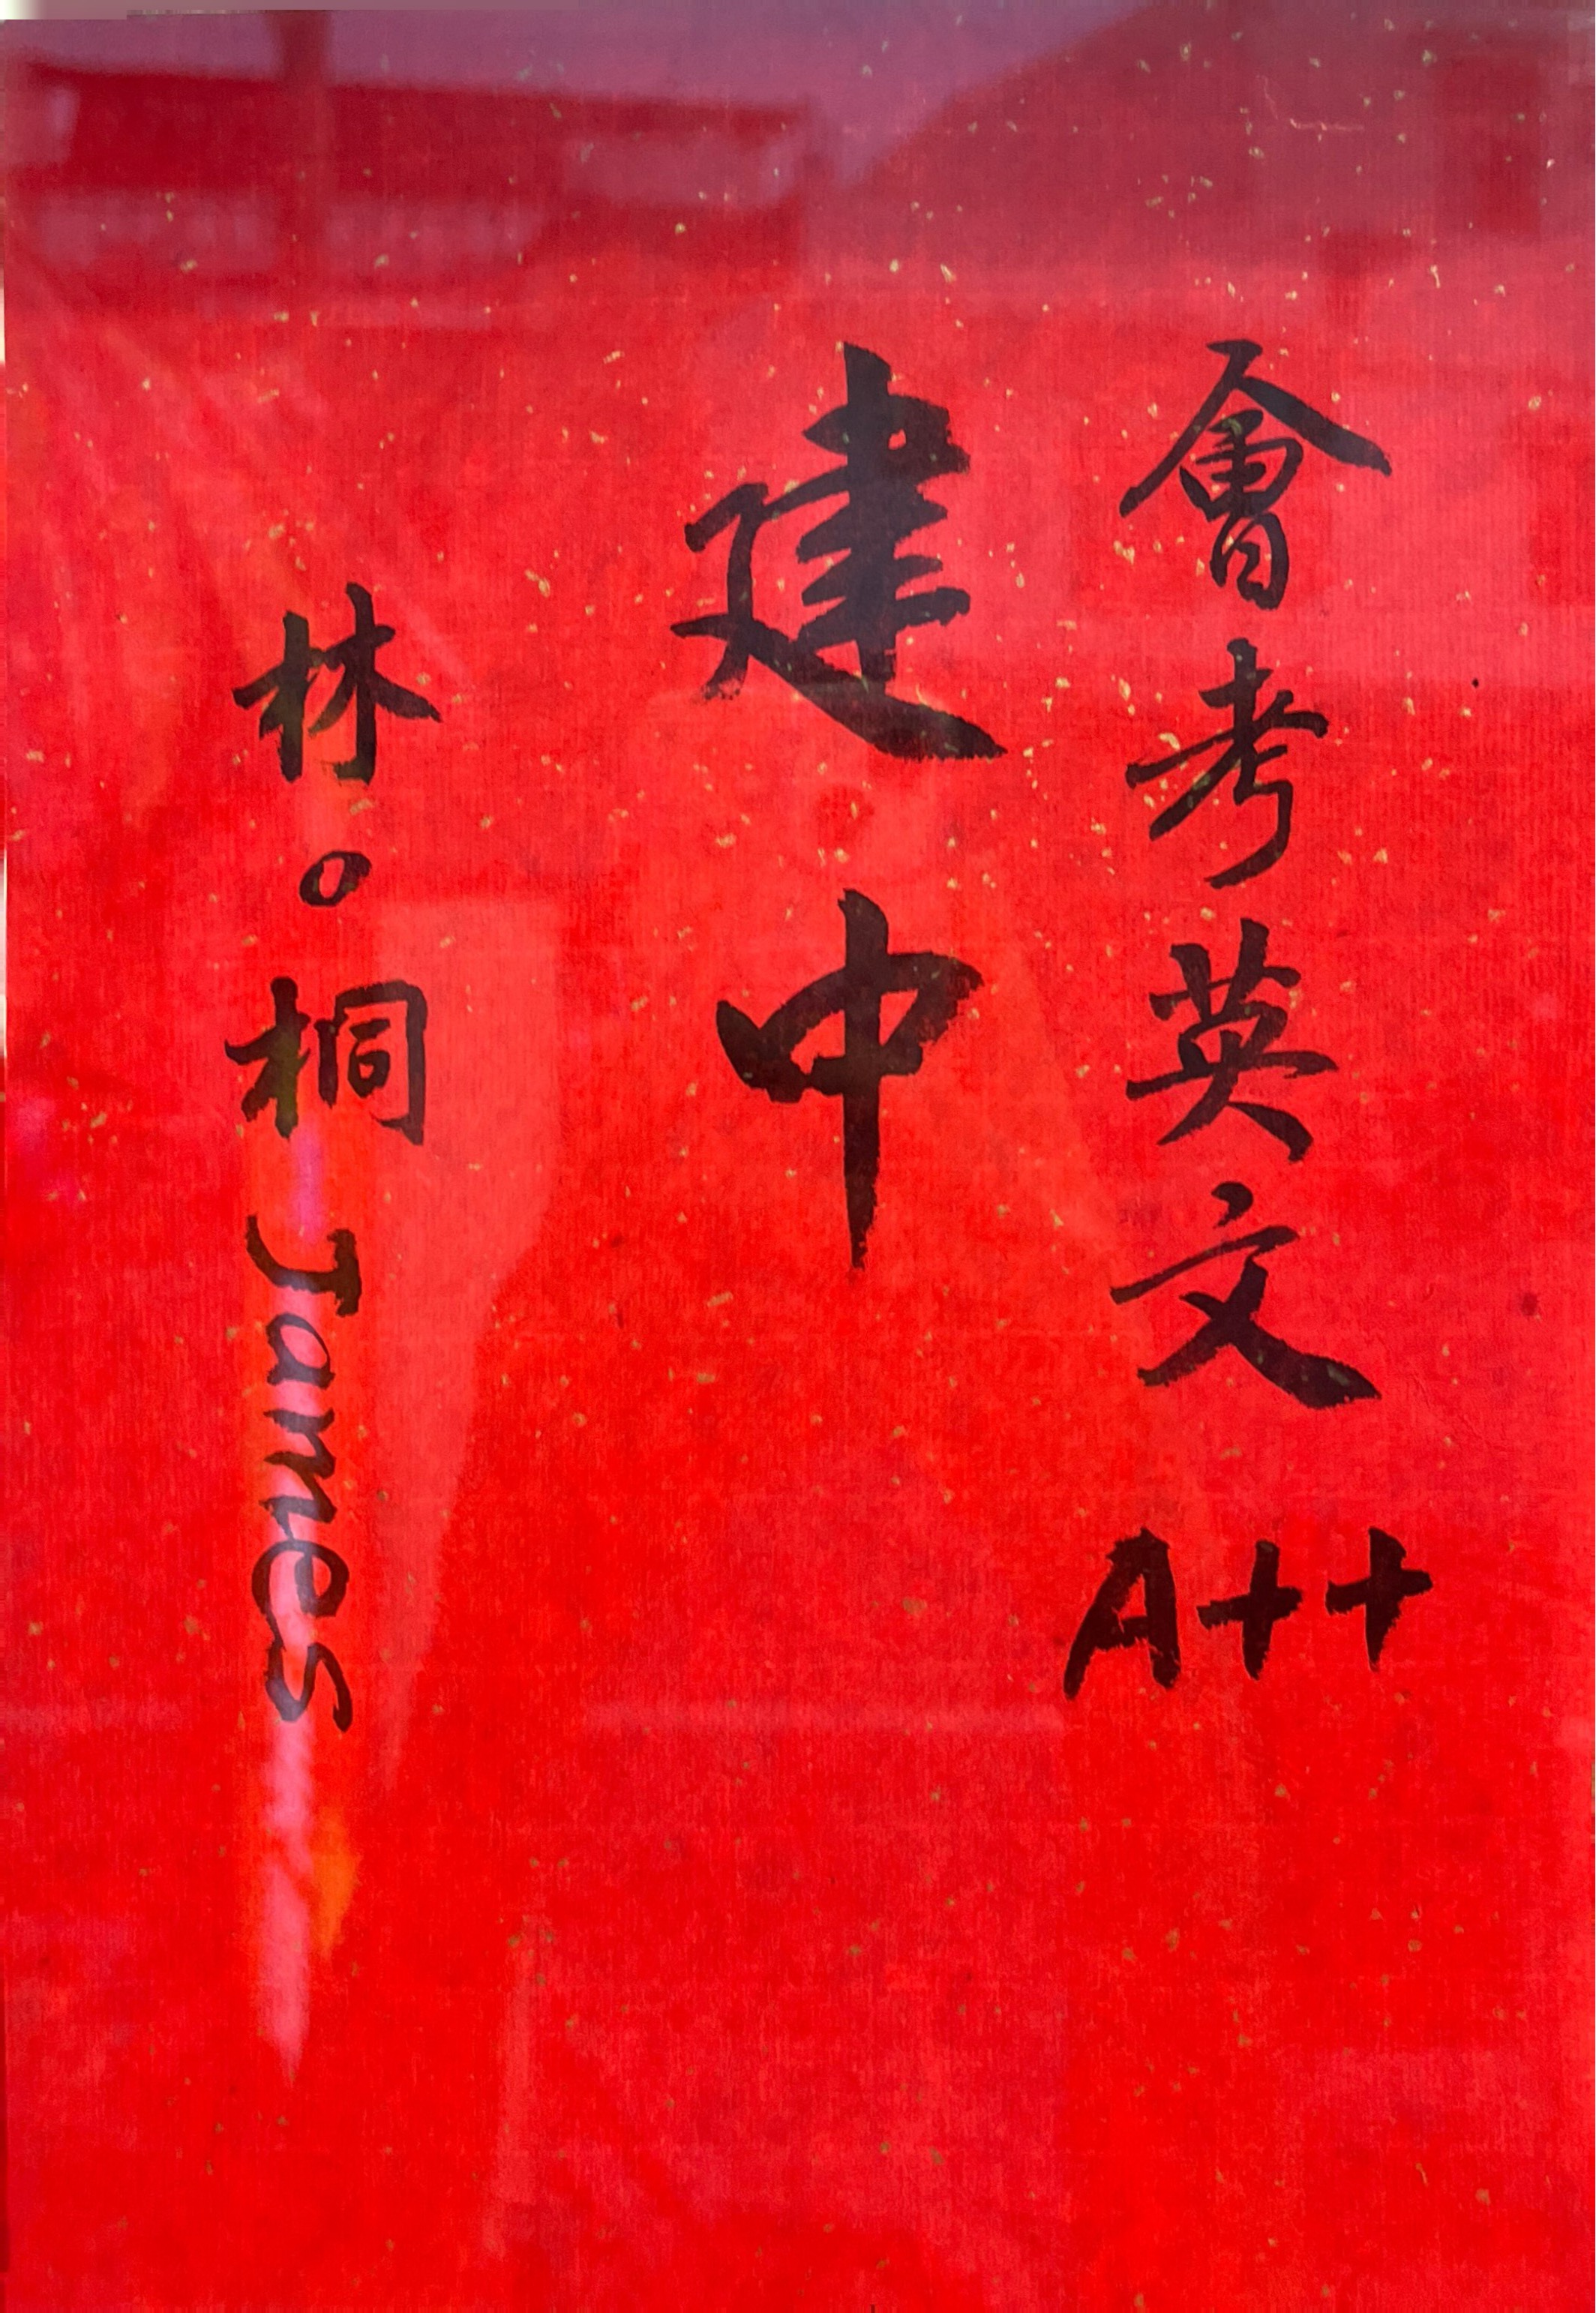 會考英文A++
建中
林○桐 James